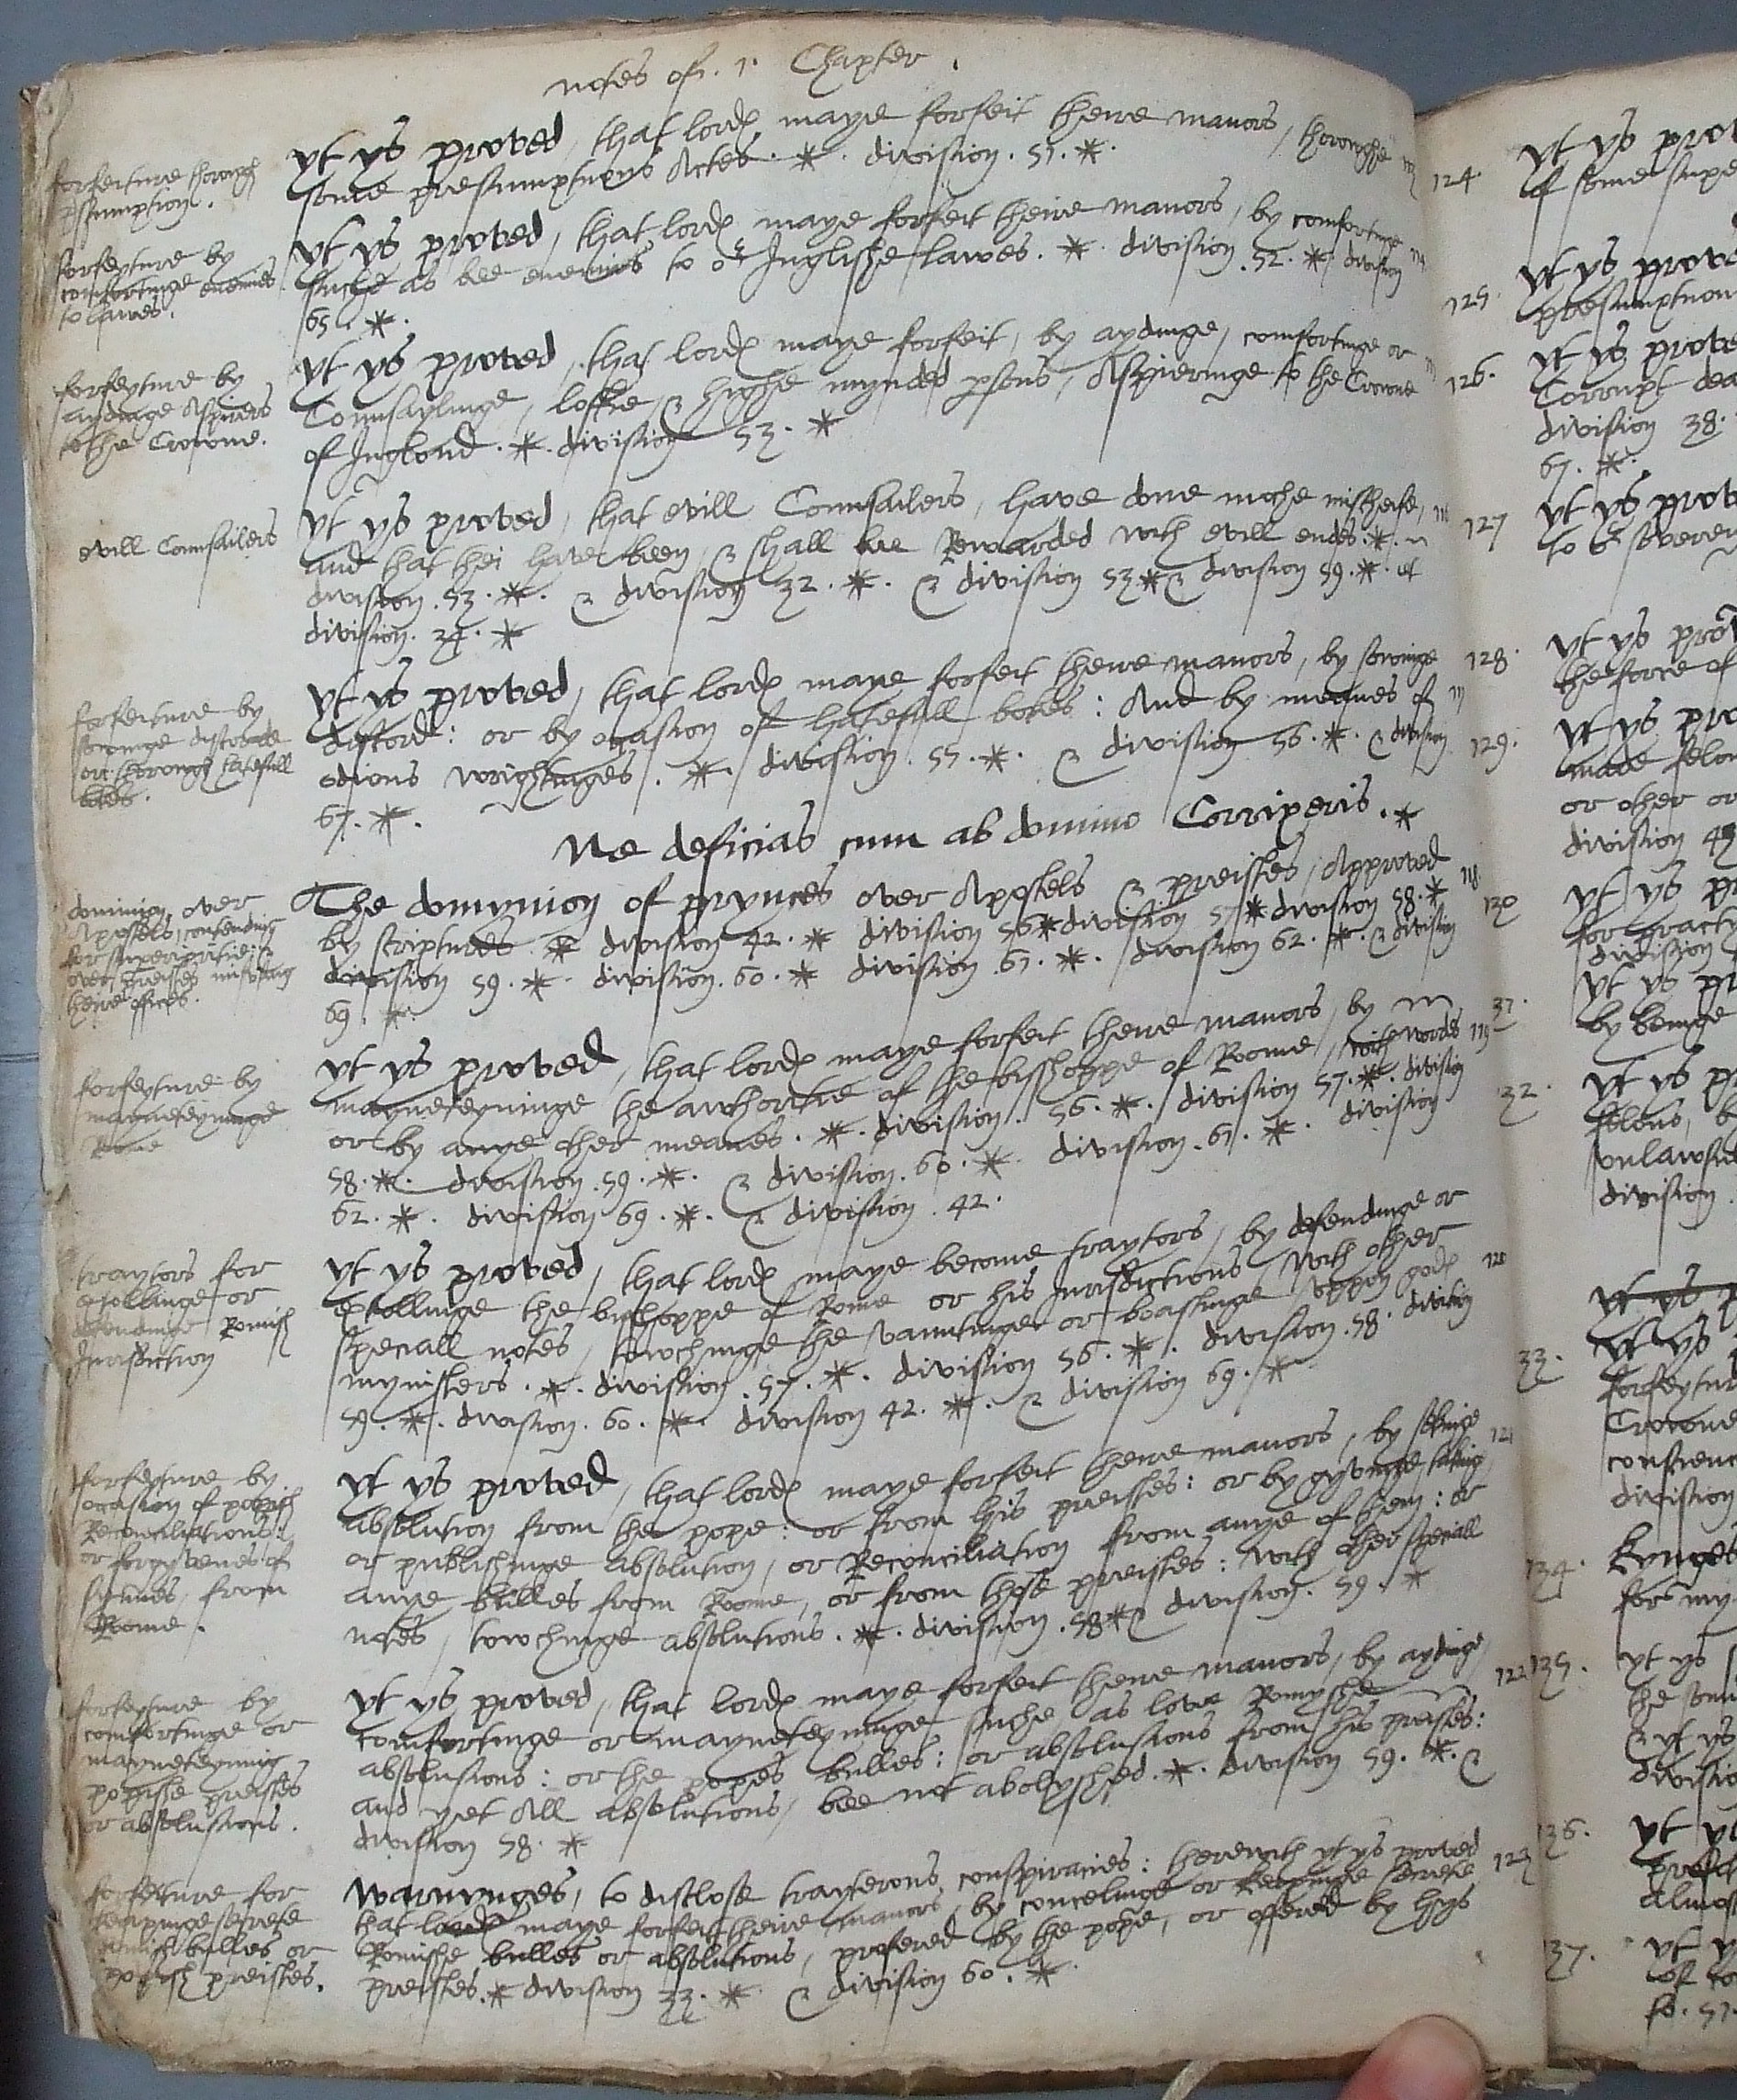 notes of .1. Chapter .
forfeiture thorough
p̱sumption .
yt ys proved, that lordꝭ maye forfeit theire manors, thoroughe
some presumptuous Actes . * . division . 51 . * .
forfeyture by
comfortinge enemies
to lawes .
yt ys proved, that lordꝭ maye forfeit theire manors, by comfortinge
suche as bee enemies to oʳ Inglishe lawes . * . division . 52 . * . division
65 . * .
forfeyture by
aydinge Aspirers
to the Crowne .
yt ys proved, that lordꝭ maye forfeit, by aydinge, comfortinge or
Counsaylinge, loftie, & highe mynded ꝑsons, Aspieringe to the Crowne
of Inglond . * . division 53 . *
evill Counsailers
yt ys proved, that evill Counsailers, have done moche mischeife,
and that thei have been, & shall bee Rewarded with evill endes : * .
division . 53 . * . & division 32 . * . & division 53 * & division 59 . * . et
division . 34 . *
forfeiture by
sowinge discorde
or thorough hatefull
bokes .
yt ys proved, that lordꝭ maye forfeit theire manors, by sowinge
discord : or by ocasion of hatefull bokes : And by meanes of
odious wrightinges . * . division . 55 . * . & division 56 . * . & division
67 . * .
Ne deficias cum ab domino Corriperis . *
dominion over
Apostels, contending
for superioritie : &
over preistes misusing
theire offices .
The domynion of prynces over Apostels & preistes, Approved 118
by scriptures * division 42 . * division 56 * division 57 * division 58 . *
division 59 . * . division . 60 . * division . 61 . * . division 62 . * . & division
69 . * .
forfeyture by
mayneteyninge
Rome
yt ys proved, that lordꝭ maye forfeit theire manors, by
mayneteyninge the authoritie of the bisshoppe of Roome, with wordes 119
or by anye other meanes . * . division . 56 . * . division 57 . * . division
58 . * . division . 59 . * . & division . 60 . * . division . 61 . * . division
62 . * . division 69 . * . & division . 42 .
traytors for
extollinge or
defendinge Romish
Jurisdiction
yt ys proved, that lordꝭ maye become traytors, by defendinge or
extollinge the bisshoppe of Rome or his Jurisdictions with other 120
speciall notes, towchinge the vauntinge or boastinge uppon godꝭ
mynisters . * . division . 57 . * . division 56 . * . division . 58 . division
59 . * . division . 60 . * . division 42 . * . & division 69 . *
forfeyture by
ocasion of popish
Reconciliations :
or forgyvenes of
synnes, from
Roome .
yt ys proved, that lordꝭ maye forfeit theire manors, by sekinge 121
absolution from the pope : or from his preistes : or by gyvinge, taking
or publishinge absolution, or Reconciliation from anye of them : or
anye bulles from Roome, or from those preistes : with other speciall
notes, towchinge absolutions . * . division . 58 * & division . 59 . *
forfeyture by
comfortinge or
mayneteyning
popishe preistes
or absolusions .
yt ys proved, that lordꝭ maye forfeit theire manors, by aydinge, 122
comfortinge or mayneteyninge suche as love Romyshe
absolusions : or the popes bulles : or absolusions from his preistes :
and yet All absolutions, bee not abolyshed . * . division 59 . * . &
division 58 . *
forfeiture for
keapinge secrete
romish bulles or
popish preistes .
Warnynges, to disclose trayterous conspiracies : therewith yt ys proved 123
that lordꝭ maye forfeit theire manors, by concelinge or keapinge secrete
Romishe bulles or absolutions, profered by the pope, or offered by hys
preistes . * division 33 . * & division 60 . * .
124 . yt ys
of some
125 . yt ys
presumptuous
126 . yt ys
Corrupt
division 38 .
67 . * .
127 yt ys
to oʳ
128 . yt ys
the force of
129 . yt ys
made
or other or
division
130 yt ys
for
division
31 . yt ys
by beinge
32 . yt ys
felons,
unlawfull
division
yt ys
33 . yt ys
forfeyture
Crowne
division
134 . kynges
for my
135 . yt ys
the
& yt ys
division
136 . yt
almost
37 . yt
of
fo . 51 .